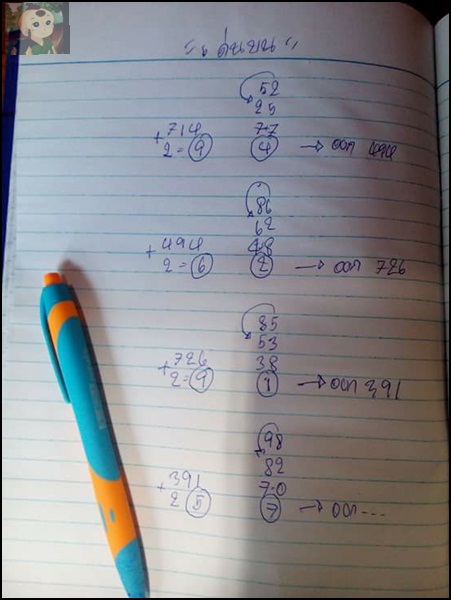 " เด่นบน "
52
25
+714 77
2=9 4 → ออก 494
86
62
+494 48
2=6 2 → ออก 726
85
53
+726 38
2=9 1 → ออก 391
98
82
+391 70
2 5 7 → ออก...